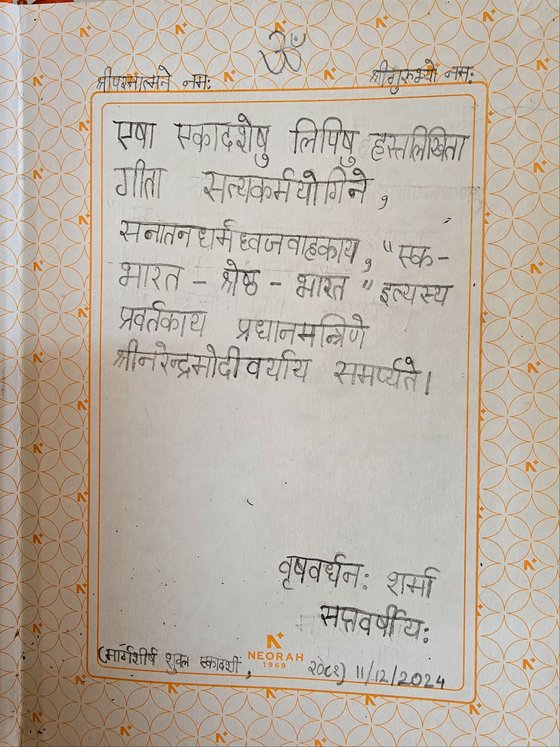 ॐ
श्रीपरमात्मने नमः श्रीगुरुभ्यो नमः
एषा एकादशेषु लिपिषु हस्तलिखिता
गीता सत्यकर्मयोगिने,
सनातनधर्मध्वजवाहकाय, "एक-
भारत - श्रेष्ठ - भारत" इत्यस्य
प्रवर्तकाय प्रधानमन्त्रिणे
श्रीनरेन्द्रमोदीवर्याय समर्प्यते।
वृषवर्धनः शर्मा
सप्तवर्षीयः
NEORAH
1969
(मार्गशीर्ष शुक्ल एकादशी, २०८१) 11/12/2024